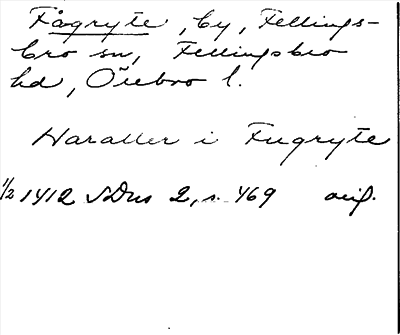 Fågryte, by, Fellings-
bro sn, Fellingsbro
hd, Örebro l.
Haralder i Fugryte
1/2 1412 SDns 2, s. 469 orig.